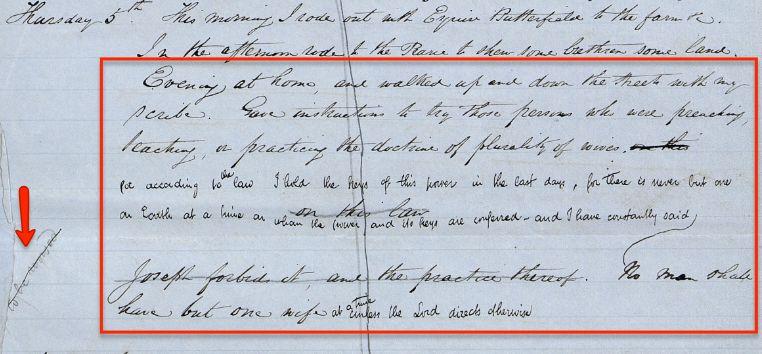 Thursday 5th This morning I rode out with Esquire Butterfield to the farm &c.
In the afternoon rode to the Prairie to shew some brethren some land.
Evening, at home, and walked up and down the streets with my
scribe. Gave instructions to try those persons who were preaching,
teaching, or practicing the doctrine of plurality of wives. on this
for according to the law I hold the keys of this power in the last days, for there is never but one
on Earth at a time on whom the power and its keys are conferred - and I have constantly said
on this law
Joseph forbids it, and the practice thereof. No man shall
have but one wife at a time unless the Lord directs otherwise
to be revised